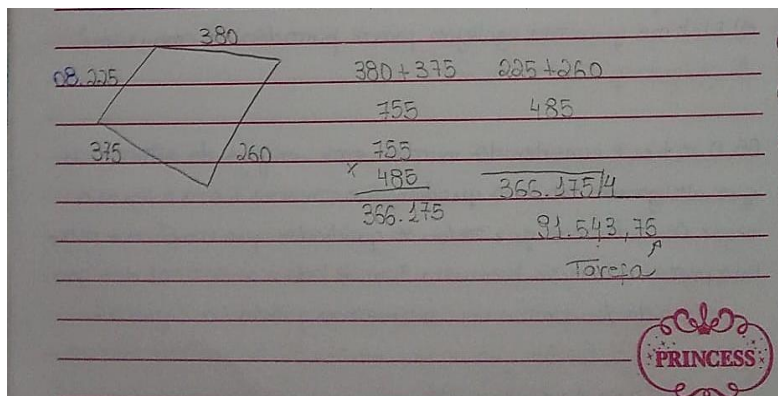 380
08. 225
380+375 225+260
755 485
375 260
755
x 485
366.175
366.175/4
91.543,75
Tarefa
PRINCESS